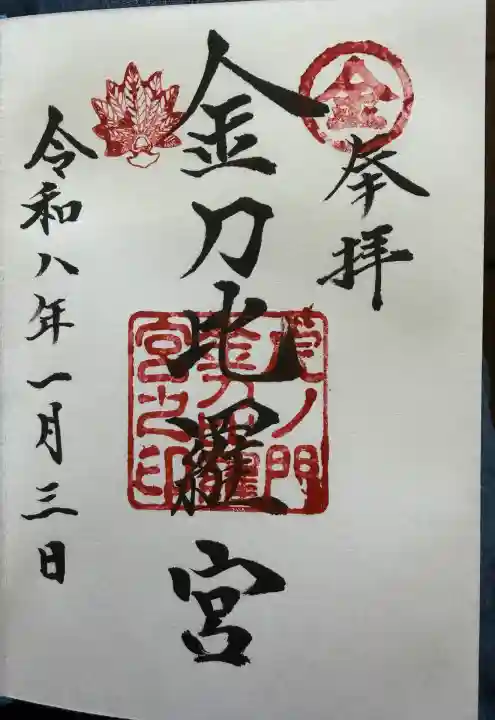 金
奉拝
虎ノ門
金刀比羅
宮之印
金刀比羅宮
令和八年一月三日